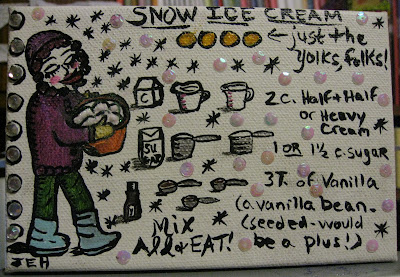 SNOW ICE CREAM
← just the
yolks, folks!
C
2 c. Half + Half
or Heavy
Cream
SUGAR
1 OR 1½ c. sugar
3T. of Vanilla
(a vanilla bean.
(seeded-would
be a plus!)
Mix
All & EAT!
JEH